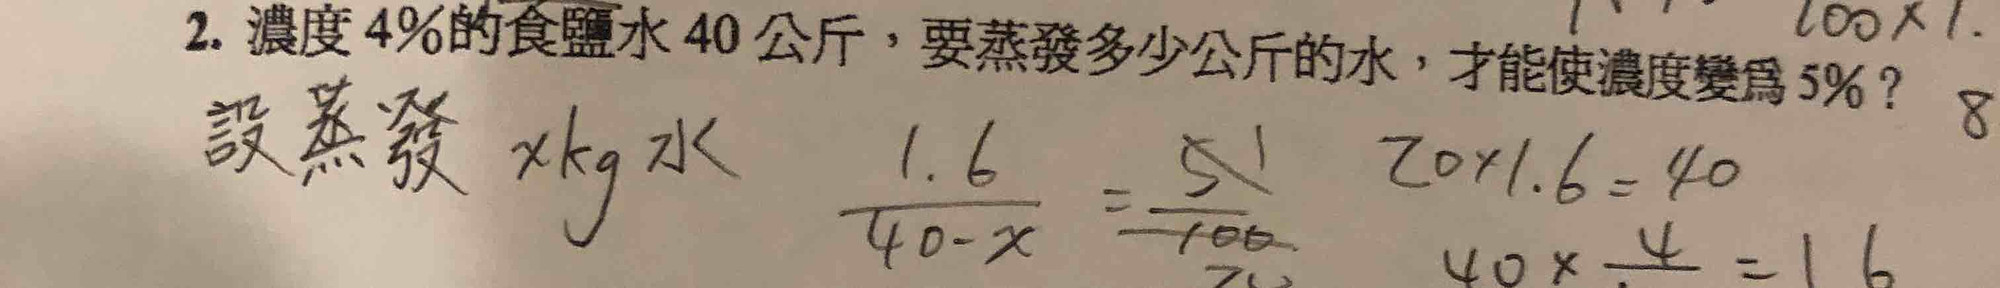 100×1.
2. 濃度 4%的食鹽水 40 公斤，要蒸發多少公斤的水，才能使濃度變為 5%？
8
設蒸發 xkg 水
1.6/40-x = 5/100 1 20
20×1.6=40
40×4/ =16